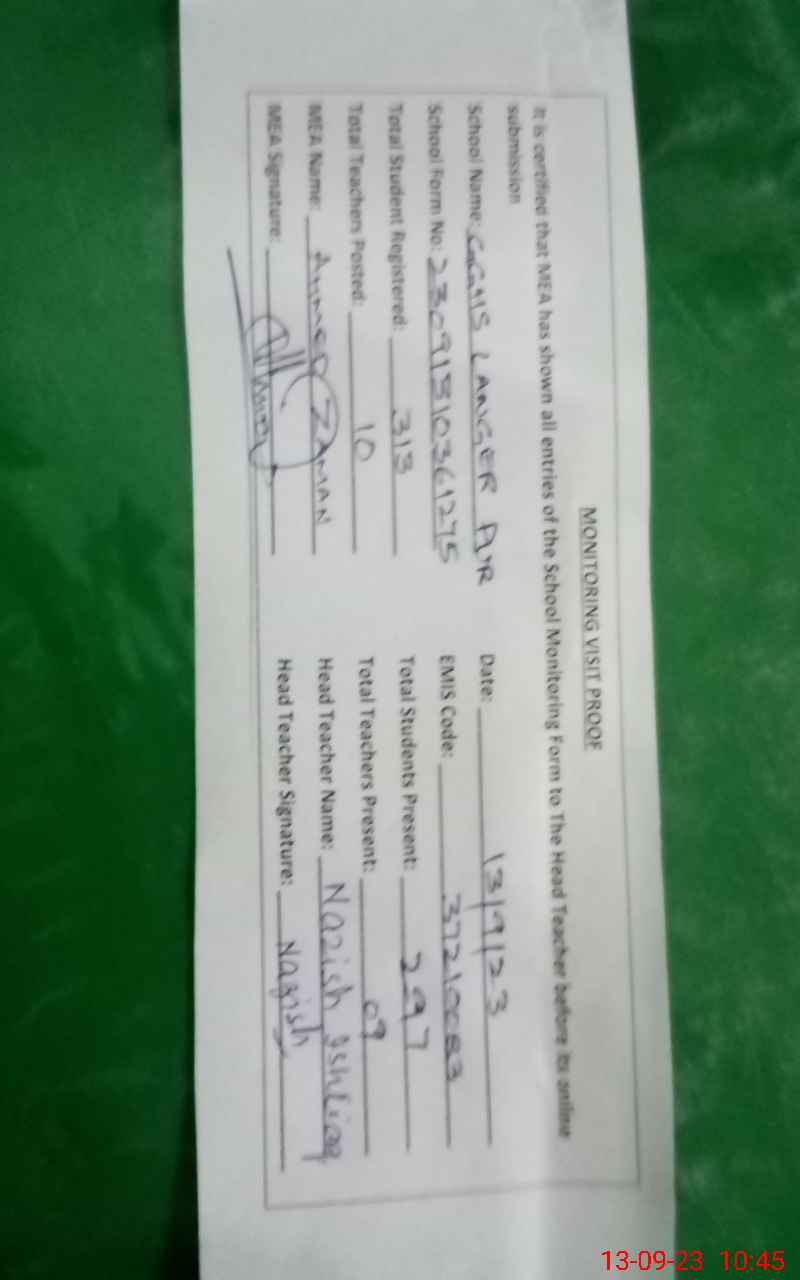 MONITORING VISIT PROOF
It is certified that MEA has shown all entries of the School Monitoring Form to The Head Teacher before its online
submission
School Name: GGHS LANGER PUR Date: 13/9/23
School Form No: 2309131036 275 EMIS Code: 37210083
Total Student Registered: 313 Total Students Present: 297
Total Teachers Posted: 10 Total Teachers Present: 09
MEA Name: AHMED ZAMAN Head Teacher Name: Nazish Ishtiaq
MEA Signature: Head Teacher Signature: Nazish
13-09-23 10:45